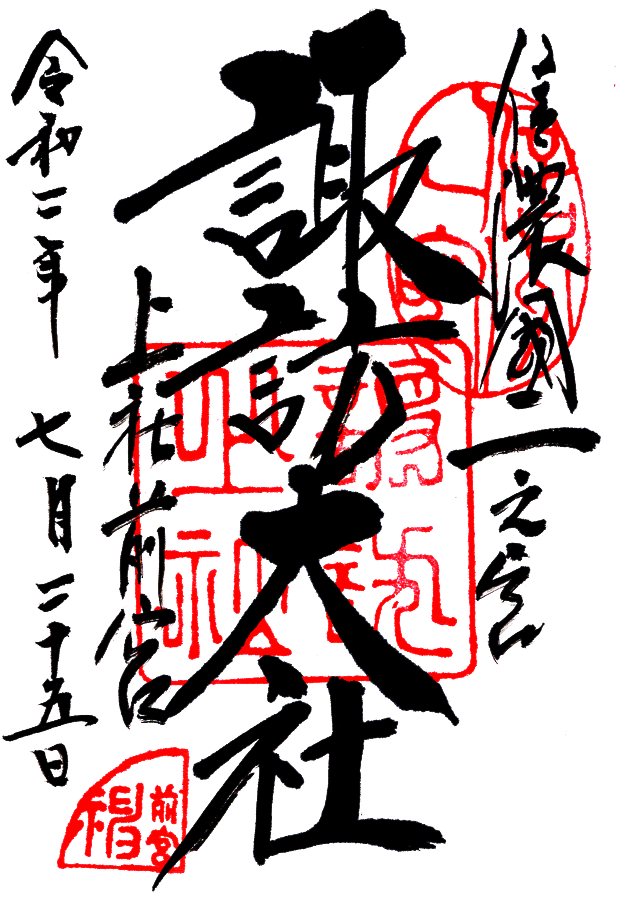 信濃國一之宮
諏訪大社
上社前宮
令和二年 七月二十五日
前宮